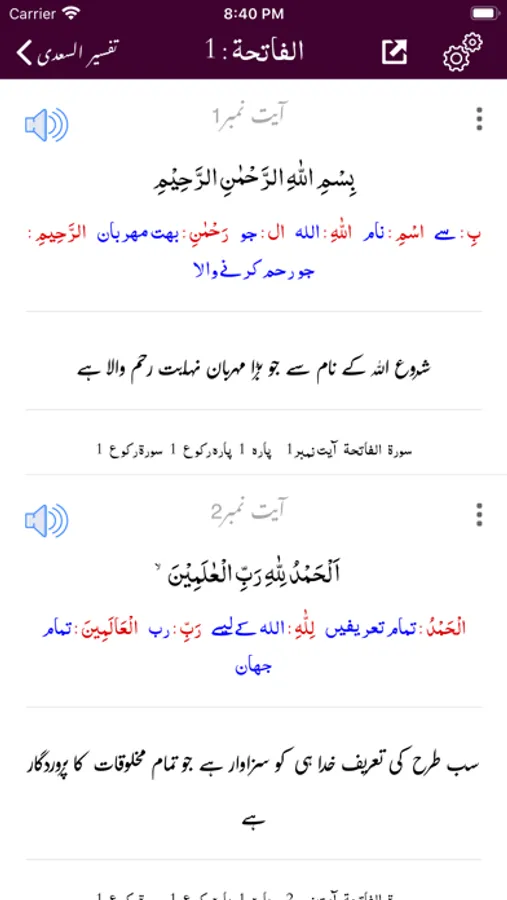 Carrier 8:40 PM
تفسیر السعدی الفاتحة : 1
آیت نمبر1
بِسْمِ اللّٰهِ الرَّحْمٰنِ الرَّحِيْمِ
بِ : سے اسْمِ : نام اللّٰهِ : الله ال : جو رَحْمٰنِ : بہت مہربان الرَّحِيمِ :
جو رحم کرنے والا
شروع اللہ کے نام سے جو بڑا مہربان نہایت رحم والا ہے
سورة الفاتحة آیت نمبر 1 پاره 1 پاره رکوع 1 سورة رکوع 1
آیت نمبر2
اَلْحَمْدُ لِلّٰهِ رَبِّ الْعٰلَمِيْنَ ۙ
الْحَمْدُ : تمام تعریفیں لِلّٰهِ : الله کے لیے رَبِّ : رب الْعَالَمِينَ : تمام
جہان
سب طرح کی تعریف خدا ہی کو سزاوار ہے جو تمام مخلوقات کا پروردگار
ہے